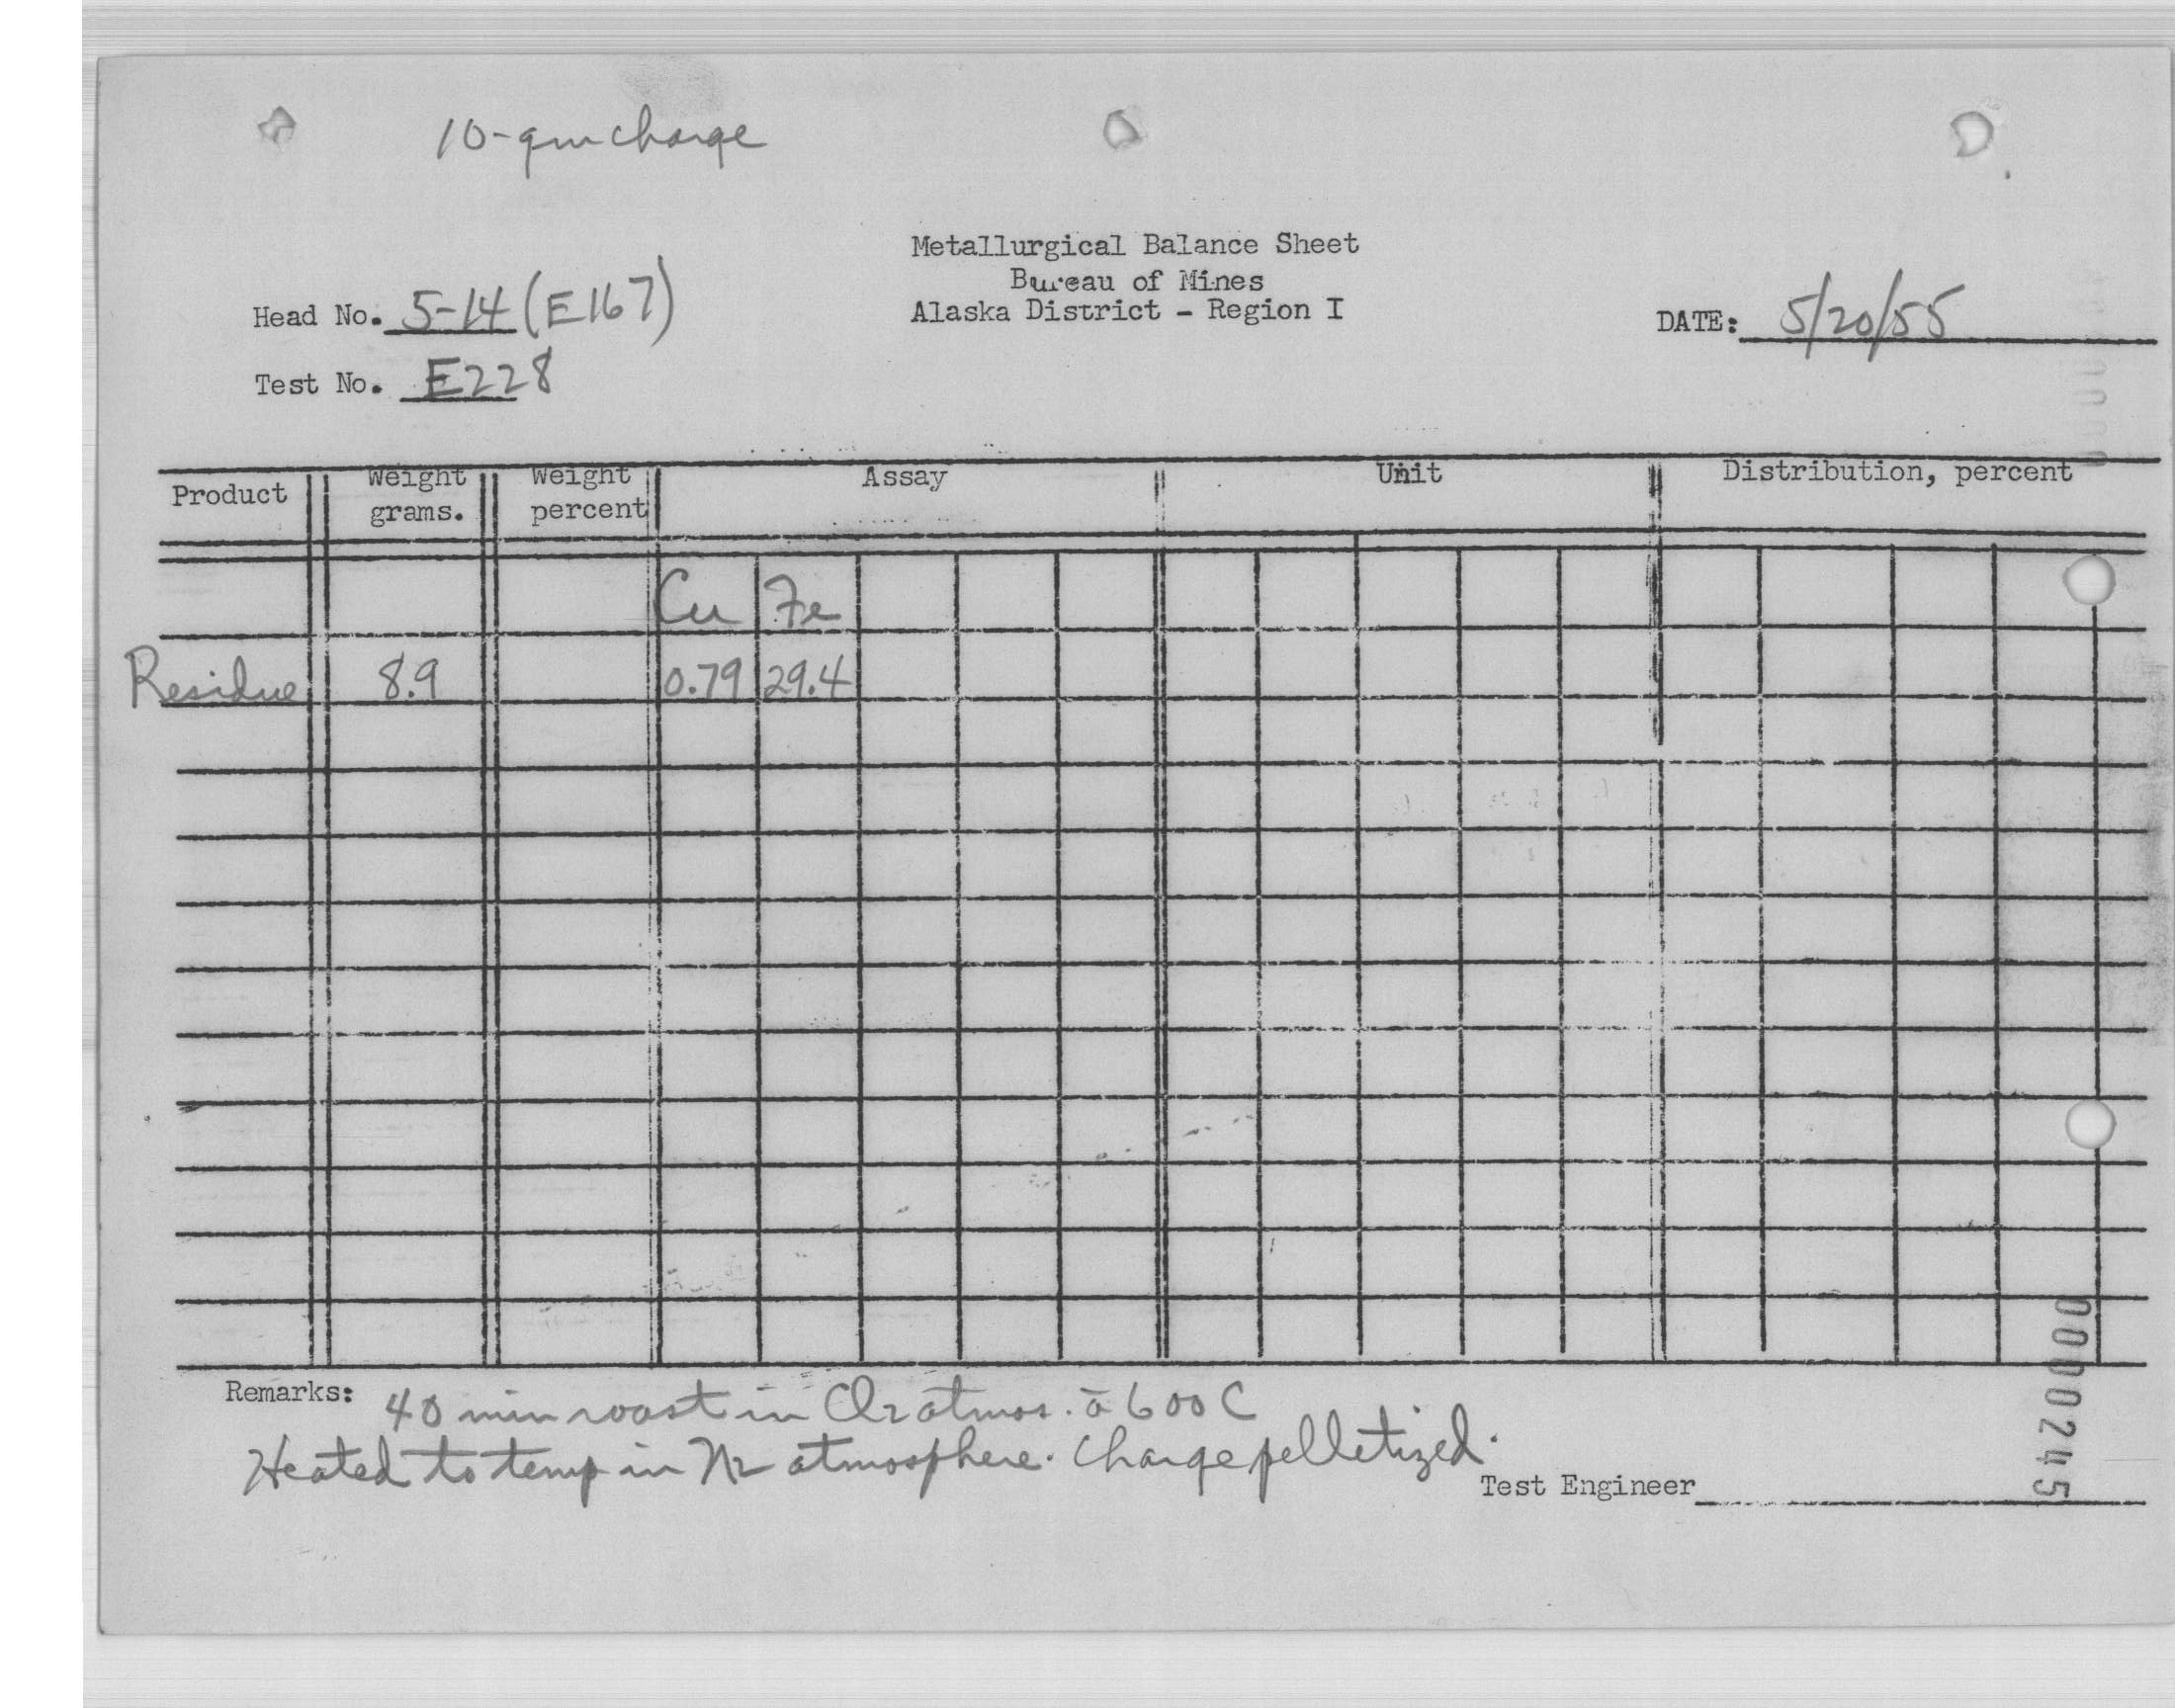 10-gm charge
Metallurgical Balance Sheet
Bureau of Mines
Alaska District - Region I
Head No. 5-14 (E167)
DATE: 5/20/55
Test No. E228
Product Weight grams. Weight percent Assay Unit Distribution, percent
Cu Fe
Residue 8.9 0.79 29.4
Remarks: 40 min roast in atmos. a 600 C
Heated to temp in N2 atmosphere. Charge pelletized.
Test Engineer
0000245